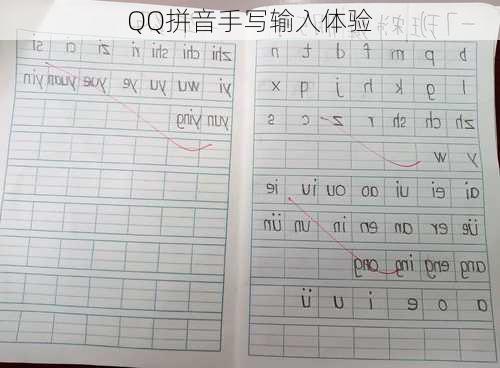 QQ拼音手写输入体验
一7班宋
b p m f d t n
l g k h j q x
zh ch sh r z c s
y w
ai ei ui ao ou iu ie
üe er an en in un ün
ang eng ing ong
a o e i u ü
zhi chi shi ri zi ci si
yi wu yu ye yue yuan yin
yun ying